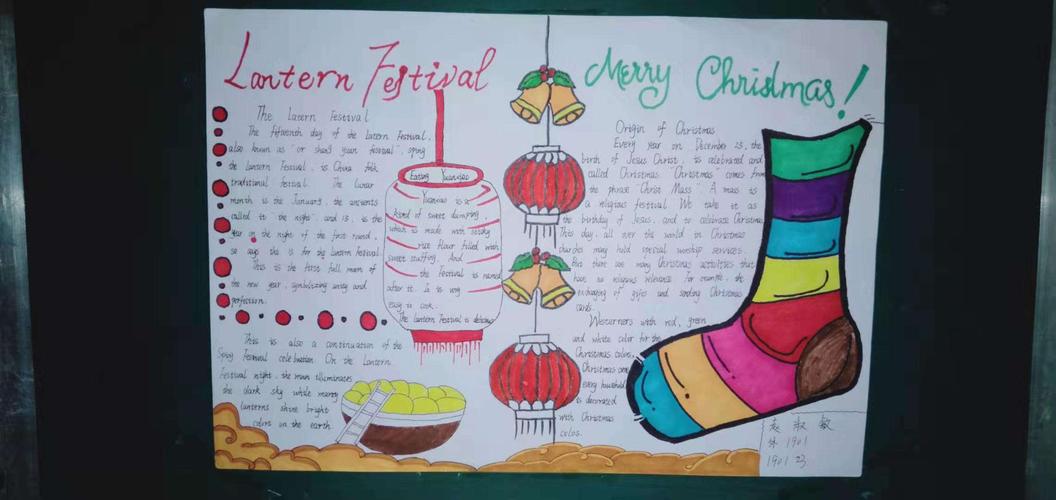 Lantern Festival
The Latern Festival
The fifteenth day of the Latern Festival,
also known as "or shang yuan festival", sping
the Lantern Festival, is China folk
traditional festival. The lunar
month is the January, the ancients
called it the "night", and is, is the
year on the night of the first round,
so says the is for the lantern Festival
This is the first full moon of
the new year, symbolizing unity and
perfection.
This is also a continuation of the
Sping Festival celebration. On the Lantern
Festival night, the moon illuminates
the dark sky while many
lanterns shine bright
colors on the earth.
Eating Yuanxiao
Yuanxiao is a
kind of sweet dumping,
which is made with sticky
rice flour filled with
sweet stuffing. And
the Festival is named
after it. It is very
easy to cook.
The Lantern Festival is delicious
Merry Christmas!
Origin of Christmas
Every year on December 25, the
birth of Jesus Christ, is celebrated and
called Christmas. "Christmas" comes from
the phrase "Christ Mass". A mass is
a religious festival. We take it as
the birthday of Jesus, and to celebrate Christmas
This day, all over the world in Christmas
churches many hold special worship services.
But there are many Christmas activities that
have no religious relevance. For example, the
exchanging of gifts and sending Christmas
cards.
Westurners with red, green
and white color for the
Christmas colors,
Christmas one
every household
is decorated
with Christmas
colos.
袁淑敏
1901
1901 23